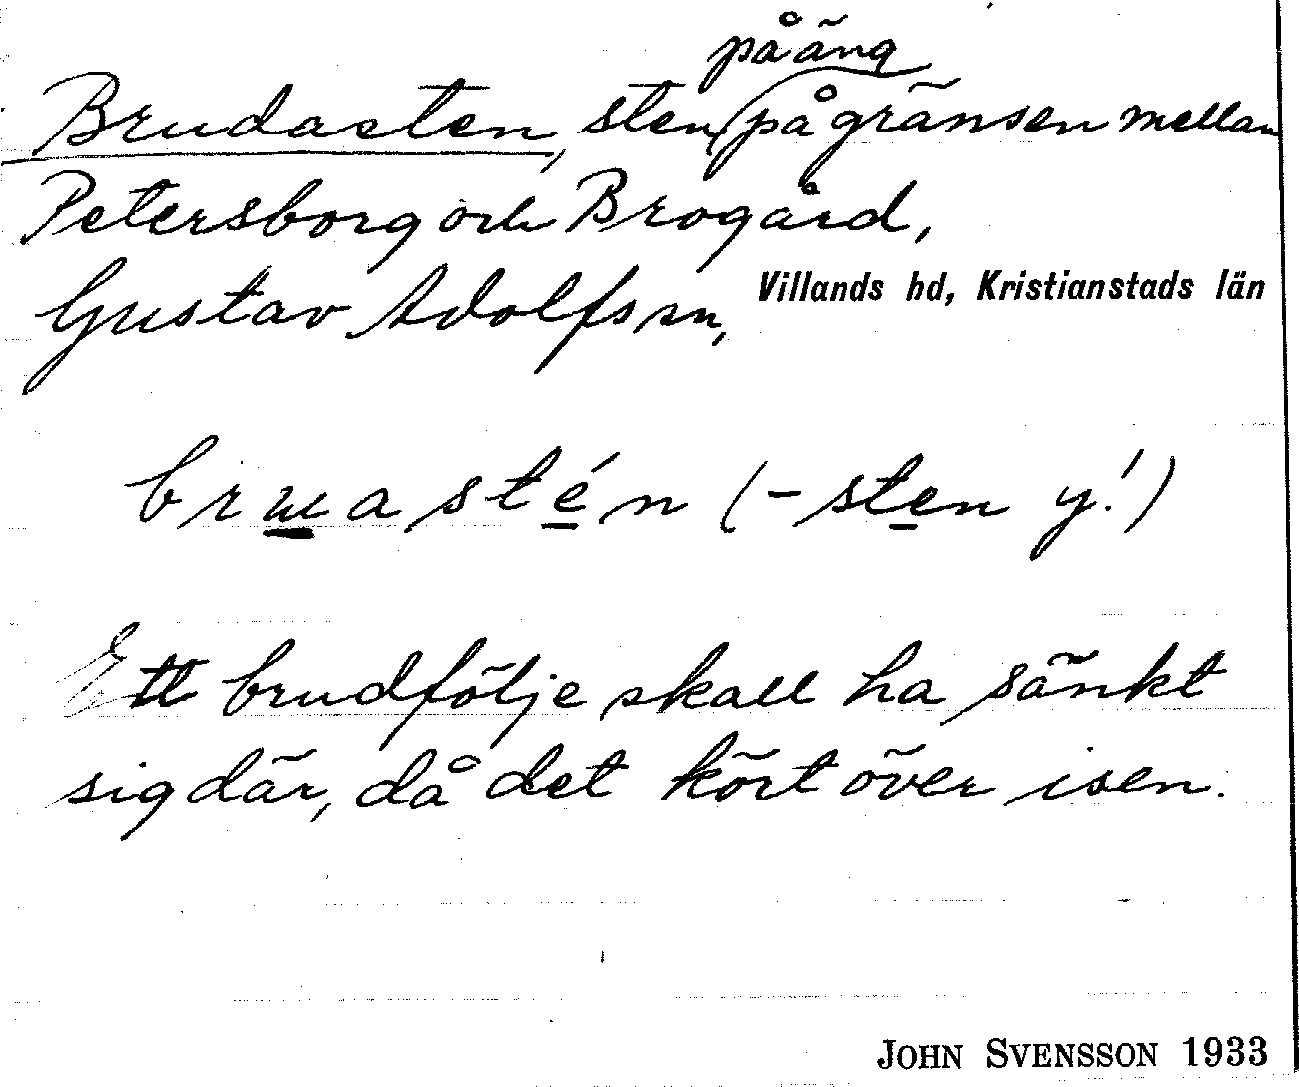 på äng
Brudasten, sten på gränsen mellan
Petersborg och Brogård,
Gustav Adolfs sn, Villands hd, Kristianstads län
bruastén (-sten y!)
Ett brudfölje skall ha sänkt
sig där, då det kört över isen.
JOHN SVENSSON 1933